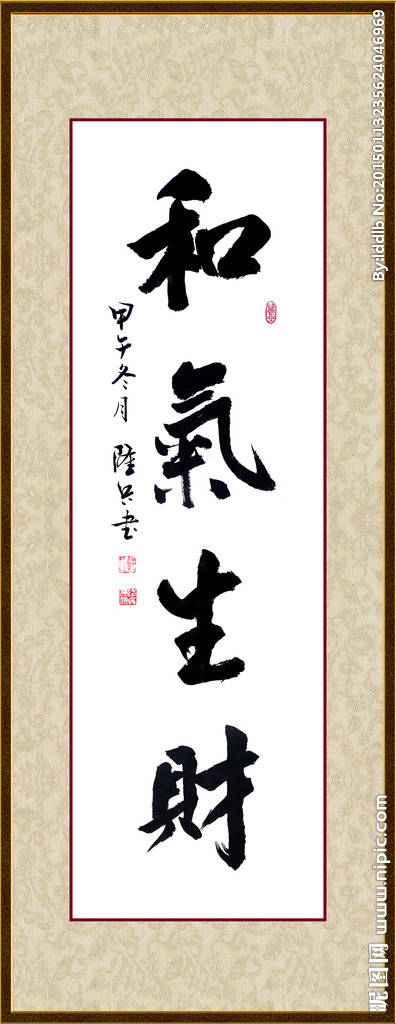 和氣生財
甲午冬月 陸兵書
By:lddlb No:20150113235624046969
昵图网 www.nipic.com